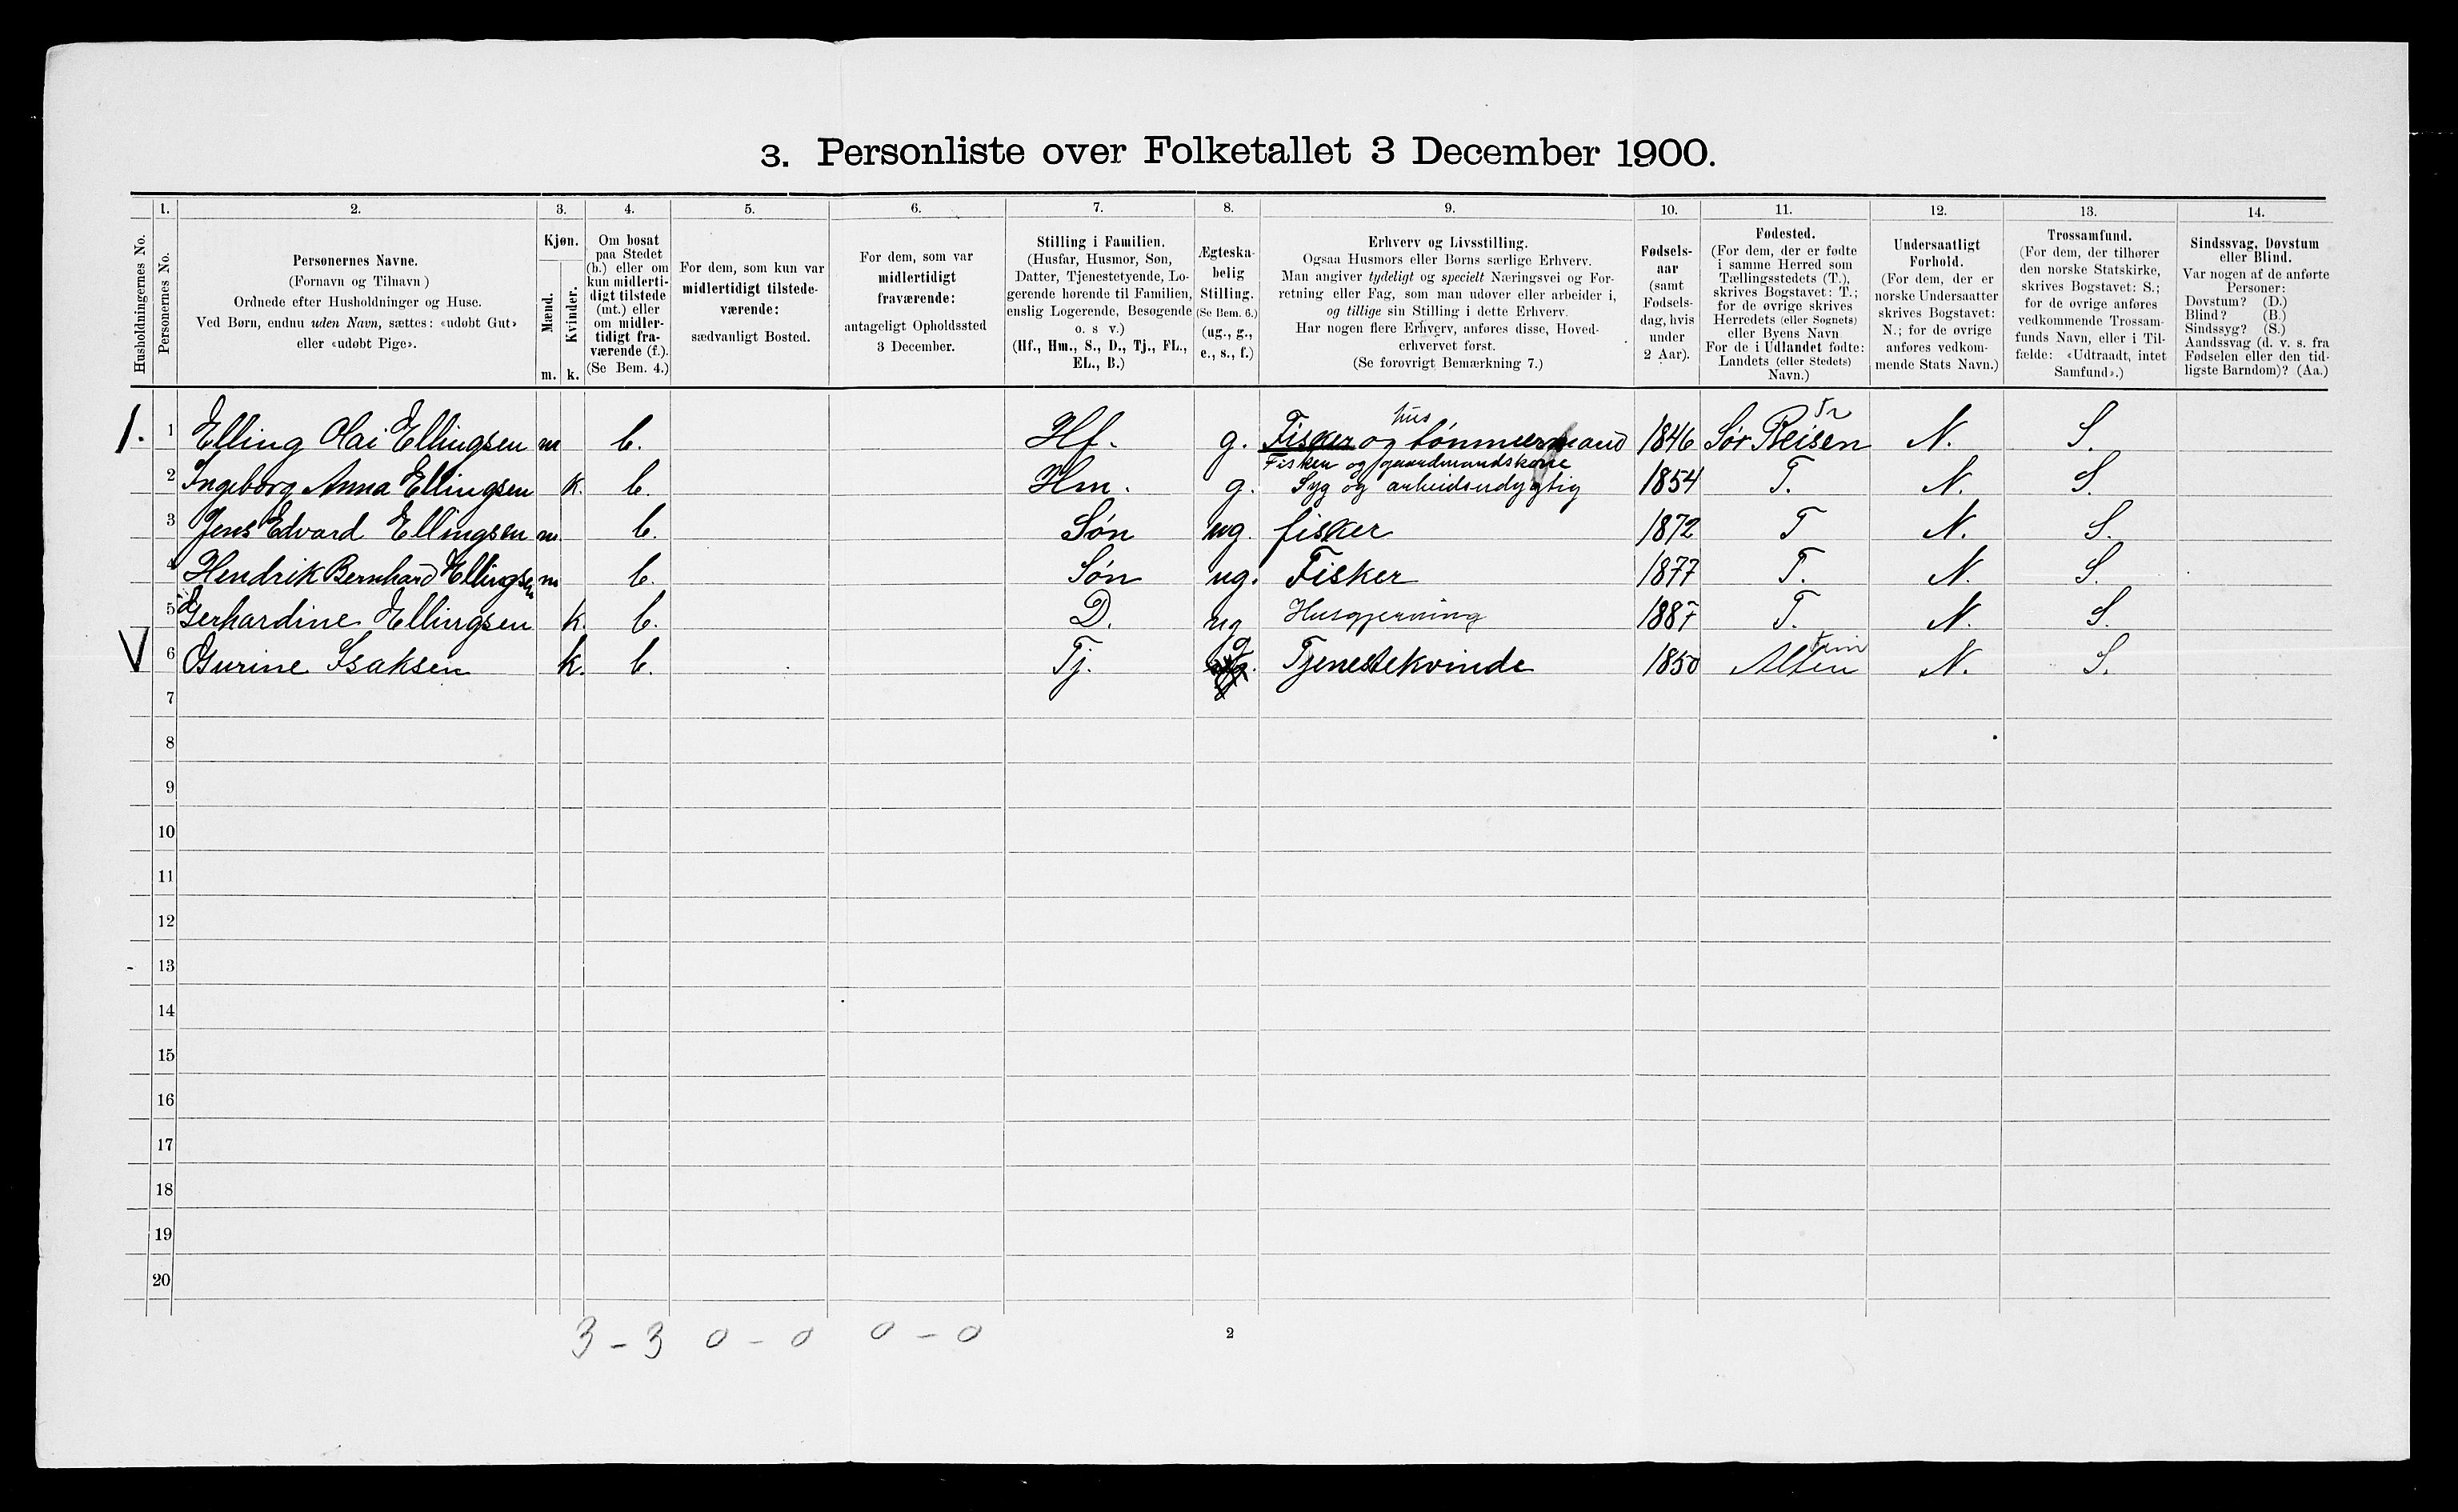 3. Personliste over Folketallet 3 December 1900.
Husholdningernes No.
1. Personernes No.
2. Personernes Navne.
(Fornavn og Tilnavn)
Ordnede efter Husholdninger og Huse.
Ved Børn, endnu uden Navn, sættes: «udøbt Gut»
eller «udøbt Pige».
3. Kjøn.
Mænd. m.
Kvinder. k.
4. Om bosat
paa Stedet
(b.) eller om
kun midlerti-
digt tilstede
(mt.) eller
om midler-
tidigt fra-
værende (f.).
(Se Bem. 4.)
5. For dem, som kun var
midlertidigt tilstede-
værende:
sædvanligt Bosted.
6. For dem, som var
midlertidigt
fraværende:
antageligt Opholdssted
3 December.
7. Stilling i Familien.
(Husfar, Husmor, Søn,
Datter, Tjenestetyende, Lo-
gerende hørende til Familien,
enslig Logerende, Besøgende
o. s v.)
(Hf., Hm., S., D., Tj., FL.,
EL., B.)
8. Ægteska-
belig
Stilling.
(Se Bem. 6.)
(ug., g.,
e., s., f.)
9. Erhverv og Livsstilling.
Ogsaa Husmors eller Børns særlige Erhverv.
Man angiver tydeligt og specielt Næringsvei og For-
retning eller Fag, som man udøver eller arbeider i,
og tillige sin Stilling i dette Erhverv.
Har nogen flere Erhverv, anføres disse, Hoved-
erhvervet først.
(Se forøvrigt Bemærkning 7.)
10. Fødsels-
aar
(samt
Fødsels-
dag, hvis
under
2 Aar).
11. Fødested.
(For dem, der er fødte
i samme Herred som
Tællingsstedets (T.),
skrives Bogstavet: T.;
for de øvrige skrives
Herredets (eller Sognets)
eller Byens Navn
For de i Udlandet fødte:
Landets (eller Stedets)
Navn.)
12. Undersaatligt
Forhold.
(For dem, der er
norske Undersaatter
skrives Bogstavet:
N.; for de øvrige
anføres vedkom-
mende Stats Navn.)
13. Trossamfund.
(For dem, der tilhører
den norske Statskirke,
skrives Bogstavet: S.;
for de øvrige anføres
vedkommende Trossam-
funds Navn, eller i Til-
fælde: «Udtraadt, intet
Samfund».)
14. Sindssvag, Døvstum
eller Blind.
Var nogen af de anførte
Personer:
Døvstum? (D.)
Blind? (B.)
Sindssyg? (S.)
Aandssvag (d. v. s. fra
Fødselen eller den tid-
ligste Barndom)? (Aa.)
hus
1. 1 Elling Olai Ellingsen m b. Hf. g. Fisker og tømmermand 1846 Sør Reisen N. S.
Fisker og gaardmandskone
2 Ingeborg Anna Ellingsen k. b. Hm. g. Syg og arbeidsudygtig 1854 T. N. S.
3 Jens Edvard Ellingsen m. b. Søn ug. fisker 1872 T N. S.
4 Hendrik Bernhard Ellingsen m b. Søn ug. Fisker 1877 T. N. S.
5 Gerhardine Ellingsen k. b. D. ug Husgjerning 1887 T. N. S.
6 Gurine Isaksen k. b. Tj. Tjenestekvinde 1850 Alten N. S.
7
8
9
10
11
12
13
14
15
16
17
18
19
20
3 - 3 0 - 0 0 - 0
2